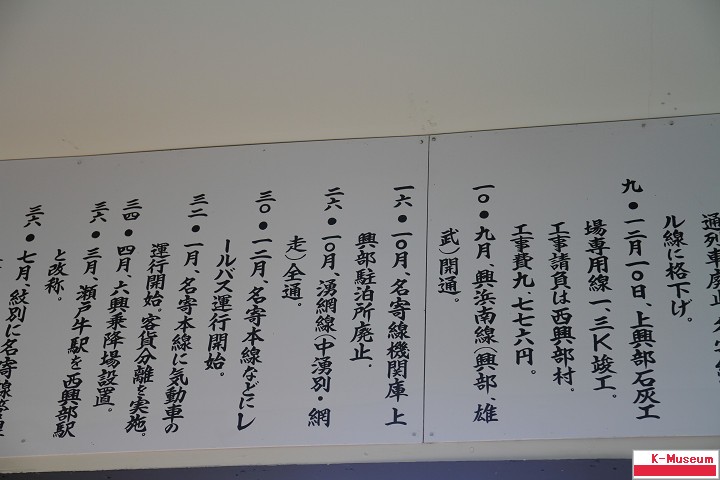 通列車廃止
ル線に格下げ。
九・一二月一〇日、上興部石灰工
場専用線一、三K竣工。
工事請負は西興部村。
工事費九、七七六円。
一〇・九月、興浜南線（興部、雄
武）開通。
一六・一〇月、名寄線機関庫上
興部駐泊所廃止.
二六・一〇月、湧網線（中湧別・網
走）全通。
三〇・一二月、名寄本線などにレ
ールバス運行開始。
三二・一月、名寄本線に気動車の
運行開始。客貨分離を実施。
三四・四月、六興乗降場設置。
三六・三月、瀬戸牛駅を西興部駅
と改称。
三六・七月、紋別に名寄線管理
K-Museum